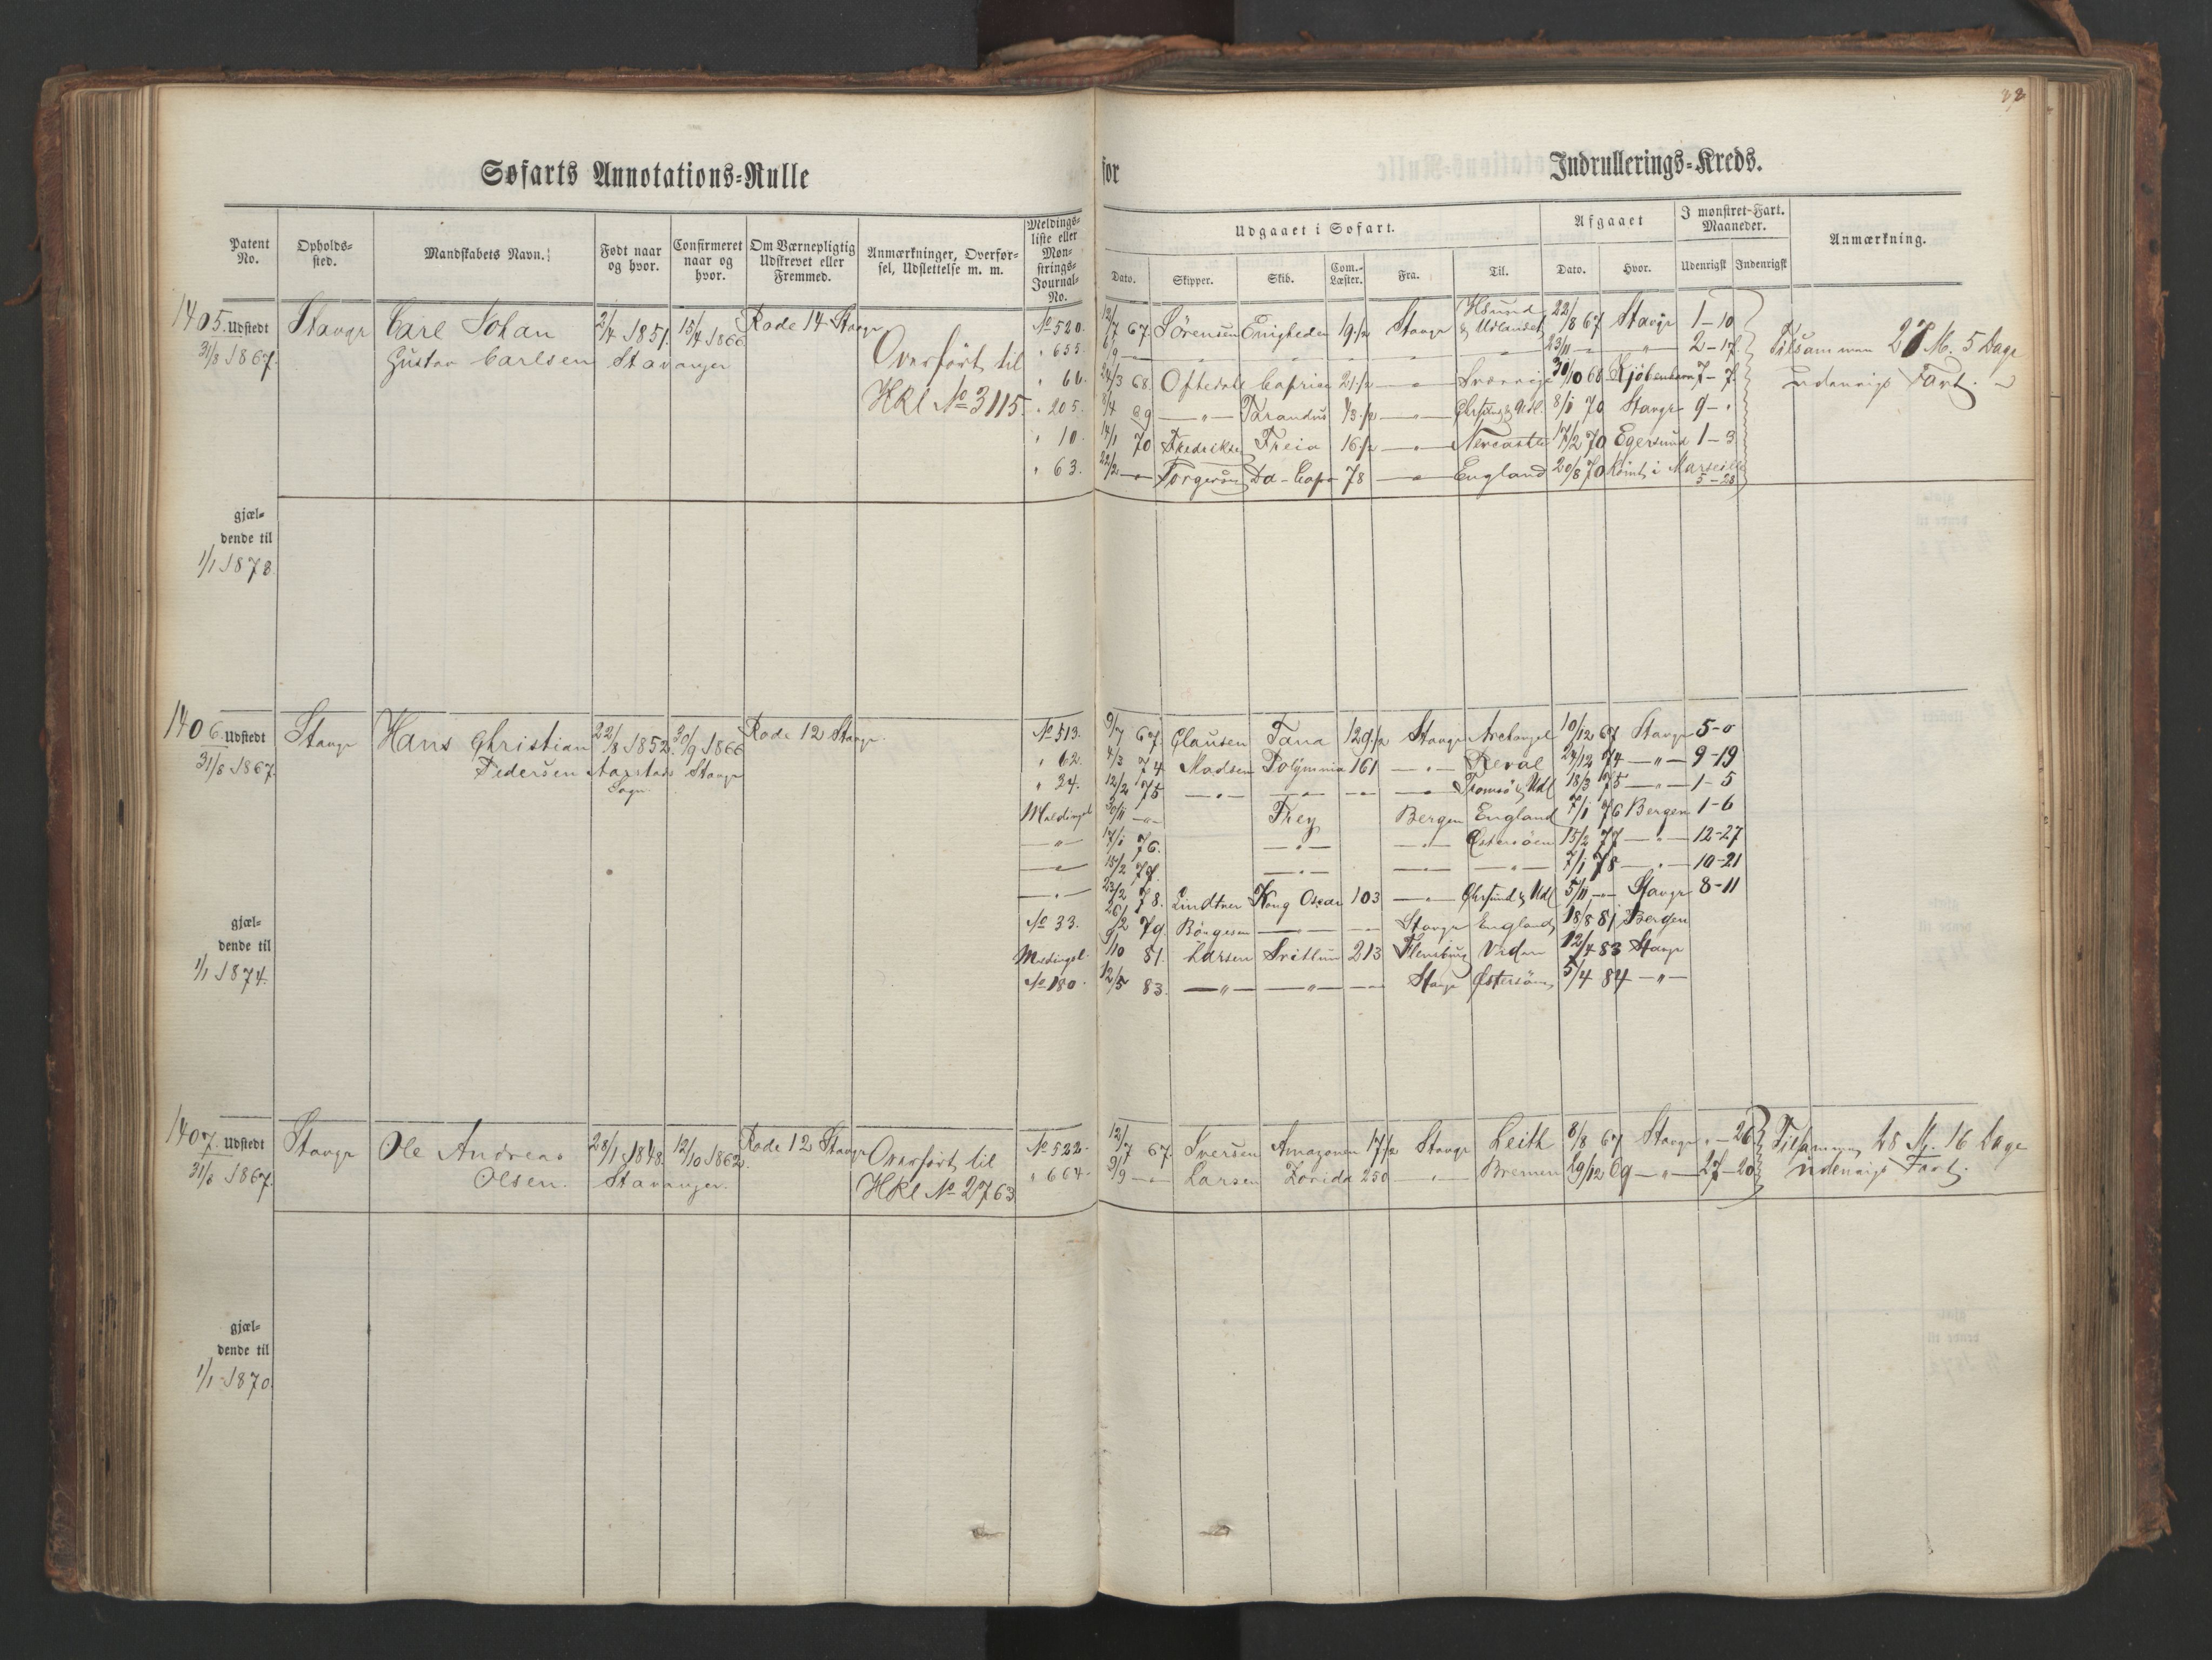 Søfarts Annotations-Rulle for Indrullerings-Kreds.
Patent No. Opholds-sted. Mandskabets Navn. Født naar og hvor. Confirmeret naar og hvor. Om Værnepligtig Udskrevet eller Fremmed. Anmærkninger, Overførsel, Udslettelse m. m. Meldings-liste eller Mønstrings-Journal-No.
Udgaaet i Søfart. Afgaaet I mønstret-Fart. Maaneder. Anmærkning.
Dato. Skipper. Skib. Com.-Læster. Fra. Til. Dato. Hvor. Udenrigsk Indenrigsk
1405. Udstedt Stavgr Carl Johan 2/4 1851. 15/4 1866 Rode 14 Stavgr № 520. 12/7 67 Sörensen Enigheden 19 1/2 Stavgr & Udlandet 22/8 67 Stavgr 1-10
31/8 1867. Gustav Carlsen Stavanger Overført til HKl № 3115. " 655. 6/9 — " — 23/11 — " — 2-17 Tilsammen M. 5 Dage
" 66. 24/3 68. Oftedal Caprice 21 1/2 — " — Sverrige 30/10 68 Kjöbenhavn 7-7 Udenrigs Fart.
" 205. 8/4 69 — " — Tarandus 8/1 70 Stavgr 9- "
" 10. 14/1 70 Fredriksen Freia 16 1/2 — " — Newcastle 17/2 70 Egersund 1-3
" 63. 22/2 — " — Torgersen 78 — " — England 20/8 70 Römt i Marseille 5-28
gjæl-
dende til
1/1 1873
1406. Udstedt Stavgr Hans Christian 22/8 1852. 30/9 1866 Rode 12 Stavgr. № 513. 9/7 67. Clausen Tana 129 1/2 Stavgr Archangel 10/12 67 Stavgr 5-0
31/8 1867. Pedersen Aarstad Sogn Stavgr " 62. 4/3 74 Madsen Polÿmnia 161 — " — Reval 24/12 74 — " — 9-19
" 24. 12/2 75 — " — — " — — " — — " — Tromsö & Udl 18/3 75 — " — 1-5
Meldingsl 30/11 — " — Frey Bergen England 7/1 76 Bergen 1-6
— " — 17/1 76. — " — — " — Østersöen 15/2 77 — " — 12-27
— " — 15/2 77. — " — — " — — " — 7/1 78 — " — 10-21
— " — 23/2 78. Lindtner Kong Oscar 103 — " — Chrsund & Udl 5/11 — " — Stavgr 8-11
№ 33. 26/2 79. Börgesen — " — — " — Stavgr England 18/8 81 Bergen
gjæl-
dende til
1/1 1874.
Meldingsl. 3/10 81. Larsen Svithun 213 Flensburg 12/4 83 Stavgr
№ 180. 12/5 83. — " — — " — — " — Stavgr Østersöen 5/4 84 — " —
1407. Udstedt Stavgr Ole Andreas 28/1 1848. 12/10 1862. Rode 12 Stavgr Overført til № 522. 12/7 67. Iversen Amazonen 17 1/2 Stavgr Leith 8/8 67 Stavgr " - 26 Tilsammen 28 M. 16 Dage
31/8 1867. Olsen. Stavanger. HKl № 2763 " 664. 9/9 — " — Larsen Zorida 250 — " — Bremen 29/12 69 — " — 27-20 udenrigs Fart.
gjæl-
dende til
1/1 1870.